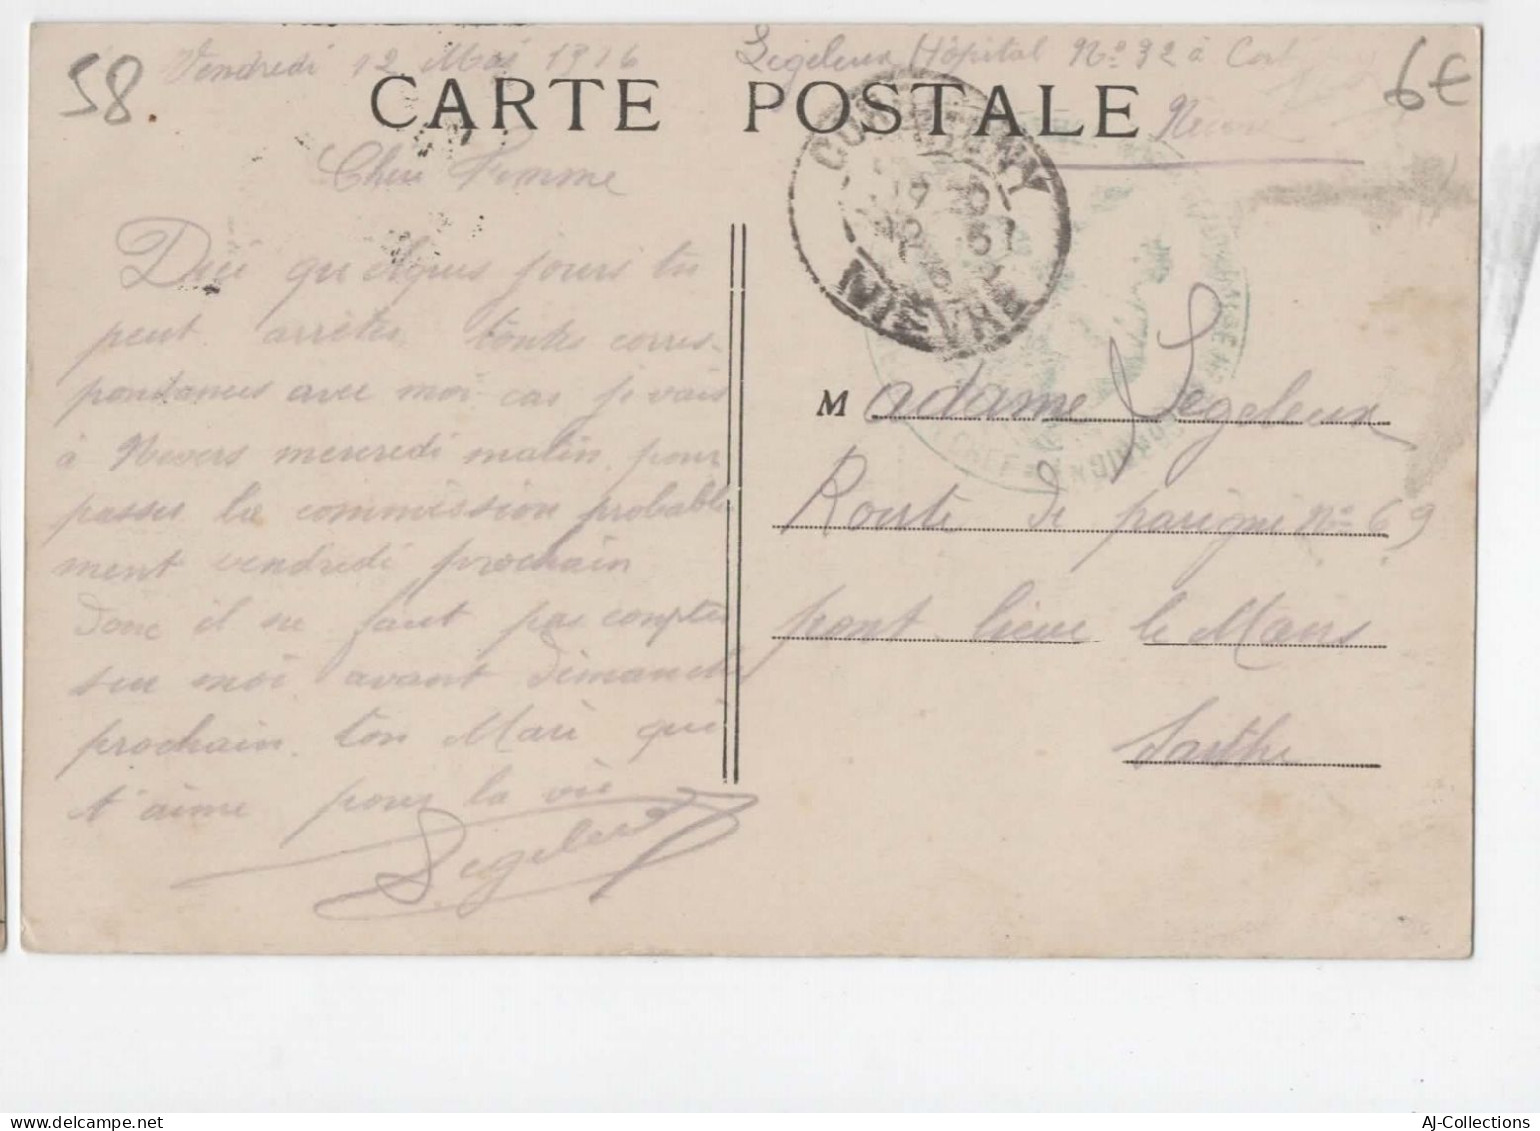 58
Vendredi 12 Mai 1916
Legeleux Hôpital No 92 à
6€
CARTE POSTALE
Cher Femme
NIEVRE
D'ici quelques jours tu
peut arrêter toutes corres-
pondances avec moi car je vais
à Nevers mercredi matin pour
passer la commission probable
ment vendredi prochain
donc il ne faut pas compter
sur moi avant dimanche
prochain. ton Mari qui
t'aime pour la vie
Legeleux
Madame Legeleux
Route de parigné No 69
pont lieue le Mans
Sarthe
AJ-Collections